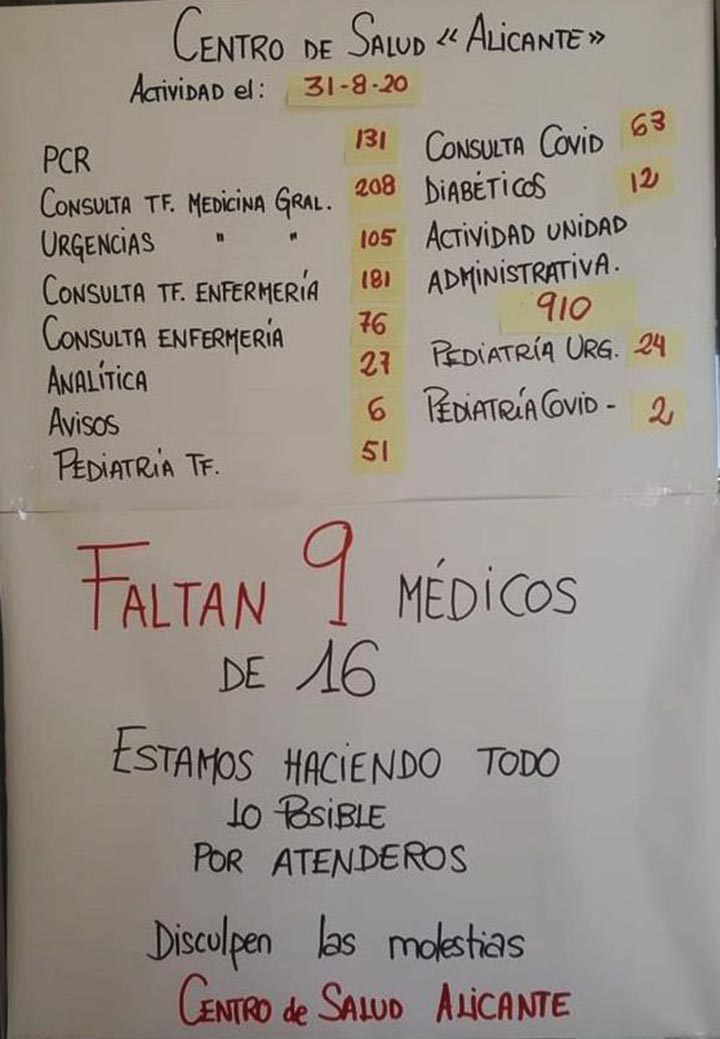 CENTRO DE SALUD « ALICANTE »
ACTIVIDAD el: 31-8-20
PCR 131
CONSULTA TF. MEDICINA GRAL. 208
URGENCIAS " " 105
CONSULTA TF. ENFERMERÍA 181
CONSULTA ENFERMERÍA 76
ANALÍTICA 27
AVISOS 6
PEDIATRÍA TF. 51
CONSULTA COVID 63
DIABÉTICOS 12
ACTIVIDAD UNIDAD
ADMINISTRATIVA.
910
PEDIATRÍA URG. 24
PEDIATRÍA COVID - 2
FALTAN 9 MÉDICOS
DE 16
ESTAMOS HACIENDO TODO
LO POSIBLE
POR ATENDEROS
Disculpen las molestias
CENTRO de SALUD ALICANTE